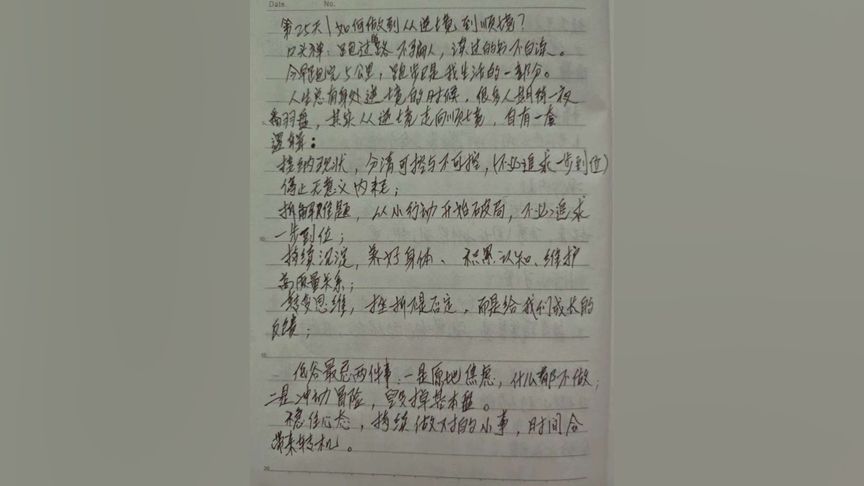 Date. No.
第25天|如何做到从逆境到顺境?
口头禅:跑过的路不骗人,读过的书不白流。
今早跑完5公里,跑步已是我生活的一部分。
人生总有身处逆境的时候,很多人期待一夜
翻盘,其实从逆境走向顺境,自有一套
逻辑:
接纳现状,分清可控与不可控,(不必追求一步到位)
停止无意义内耗;
拆解难题,从小行动开始破局,不必追求
一步到位;
持续沉淀,养好身体、积累认知、维护
高质量关系;
转变思维,挫折不是否定,而是给我们成长的
反馈;
低谷最忌两件事:一是原地焦虑,什么都不做;
二是冲动冒险,毁掉基本盘。
稳住心态,持续做对的小事,时间会
带来转机。